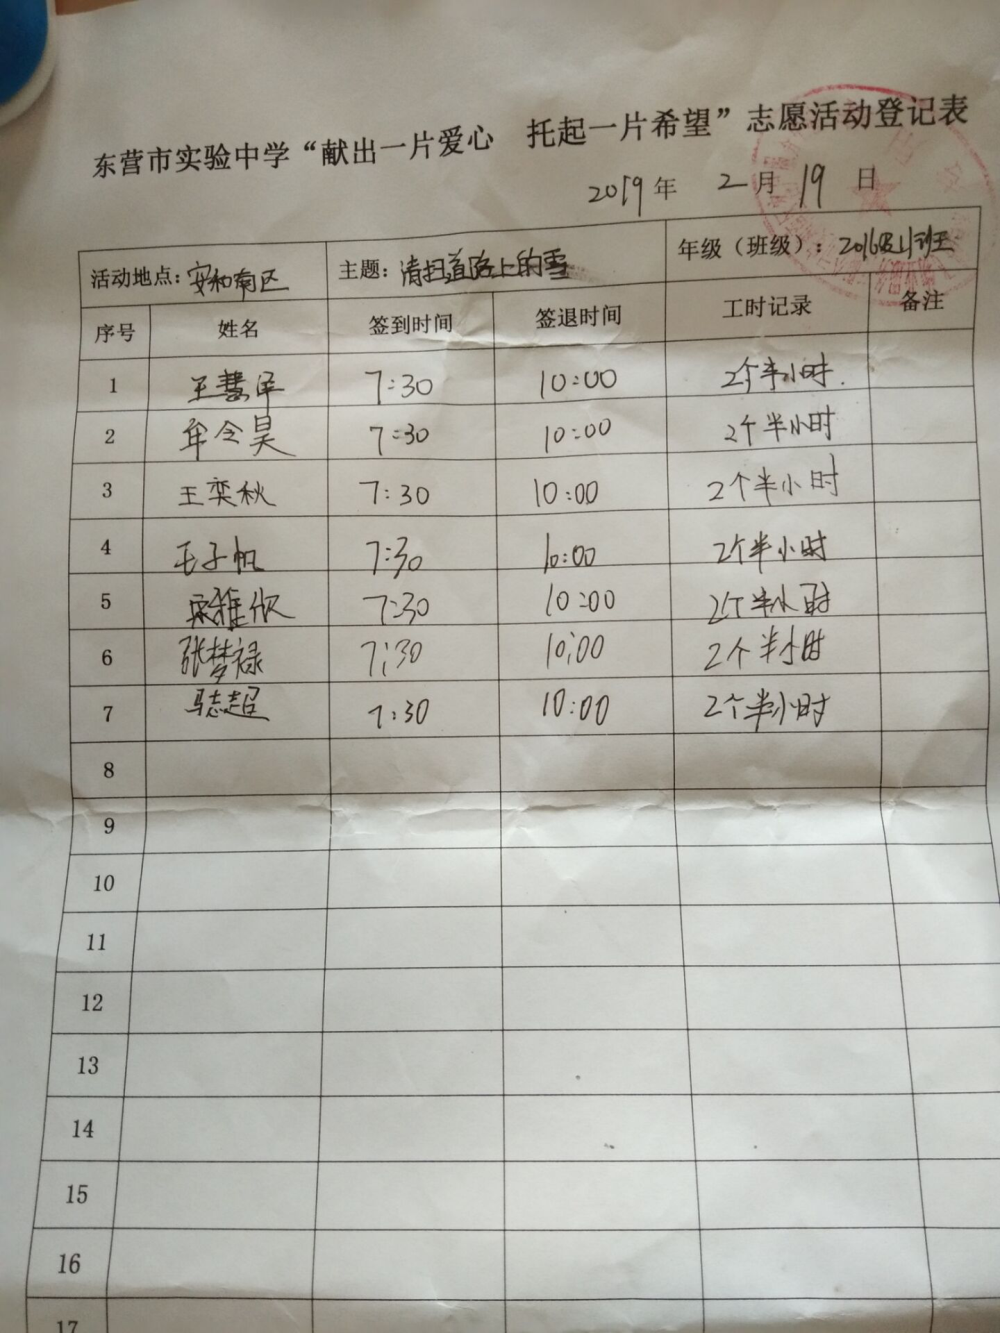 东营市实验中学“献出一片爱心 托起一片希望”志愿活动登记表
2019年 2月 19日
活动地点：安和南区 主题：清扫道路上的雪 年级（班级）：2016级
序号 姓名 签到时间 签退时间 工时记录 备注
1 王慧 7:30 10:00 2个半小时.
2 牟令昊 7:30 10:00 2个半小时
3 王奕秋 7:30 10:00 2个半小时
4 王子帆 7:30 10:00 2个半小时
5 雅欣 7:30 10:00 2个半小时
6 张梦禄 7:30 10:00 2个半小时
7 马志超 7:30 10:00 2个半小时
8
9
10
11
12
13
14
15
16
17